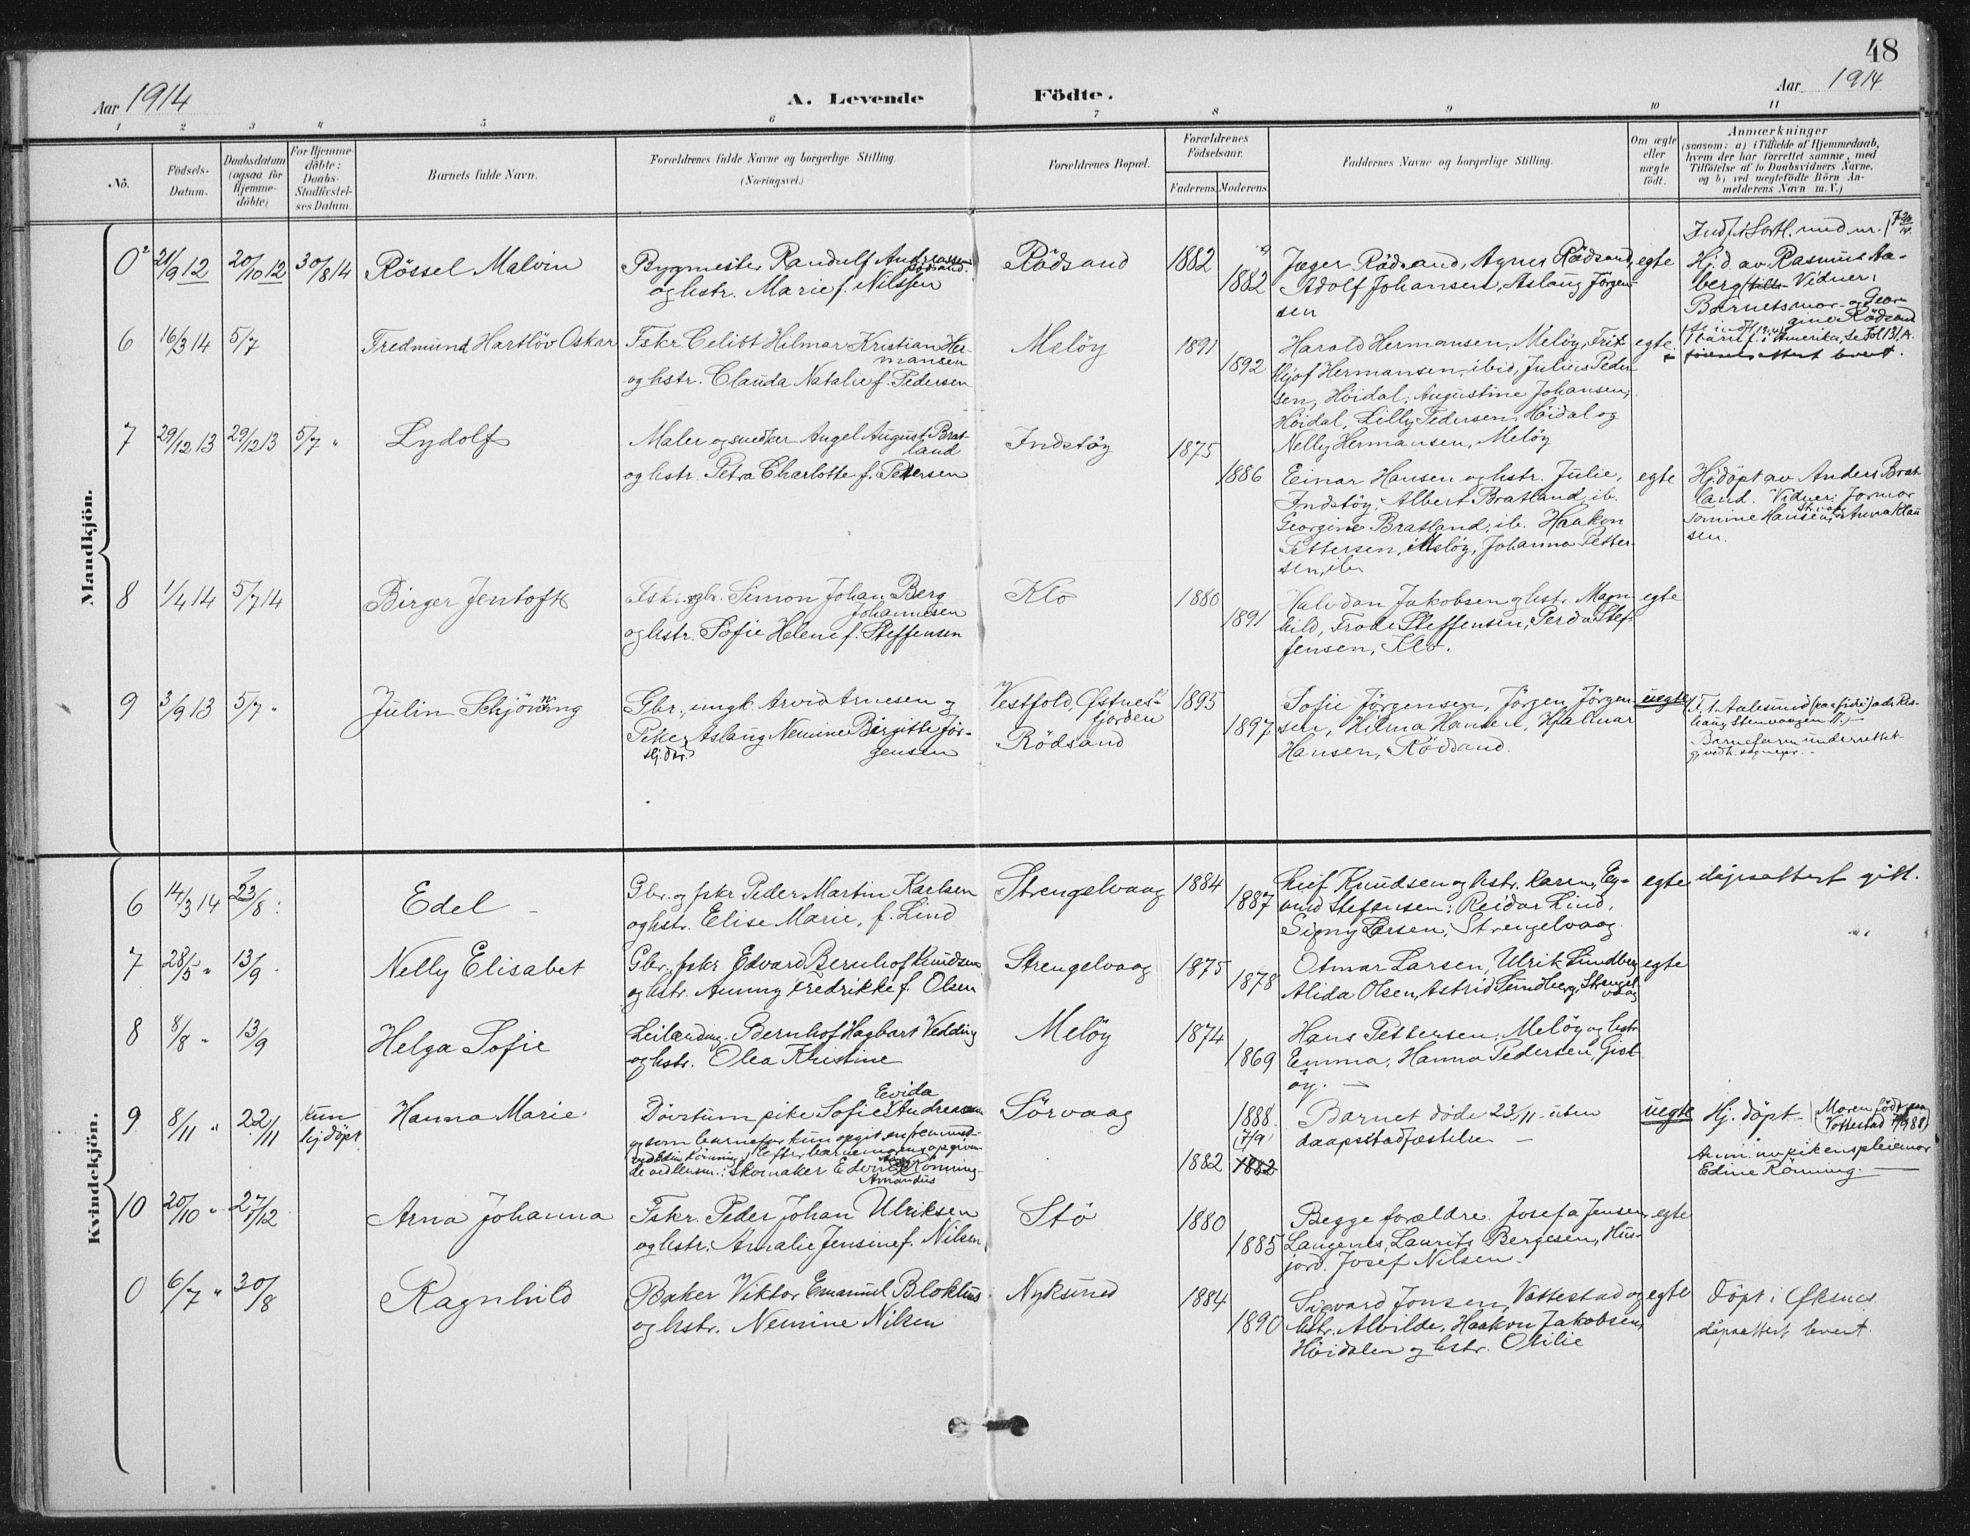 48
Aar 1914
A. Levende Födte.
Aar 1914
1 2 3 4 5 6 7 8 9 10 11
No.
Födsels-Datum.
Daabsdatum (ogsaa for Hjemme-döbte)
For Hjemme-döbte: Daabs-Stadfæstel-ses Datum.
Barnets fulde Navn.
Forældrenes fulde Navne og borgerlige Stilling.
(Næringsvei.)
Forældrenes Bopæl.
Forældrenes Födselsaar.
Faderens. Moderens.
Faddernes Navne og borgerlige Stilling.
Om ægte eller uægte födt.
Anmærkninger
(saasom: a) i Tilfælde af Hjemmedaab, hvem der har forrettet samme, med Tilföielse af to Daabsvidners Navne, og b) ved uægtefödte Börn An-melderens Navn m. V.)
Mandkjön.
0² 21/9 12 20/10 12 30/8 14 Rössel Malvin
Bygmester Randulf Andreassen
og hstr. Marie f. Nilsen
Rödsand 1882 1882
Jæger Rödsand, Agnes Rödsand,
Adolf Johansen, Aslaug Jörgen-
sen
egte
Hj.d. av Rasmus Aa-
berg Vidner:
Barnetsmor og Geor-
gine Rödsand
6 16/3 14 5/7 Fredmund Hartlöv Oskar
Fskr. Celiot Hilmar Kristian Her-
mansen
og hstr. Clauda Natalie f. Pedersen
Meløy 1891 1892
Harald Hermansen, Meløy, Frit-
hjof Hermansen, ibid, Julius Peder-
sen, Höidal, Augustine Johansen,
Höidal, Lilly Pedersen, Höidal og
Nelly Hermansen, Meløy
egte
7 29/12 13 29/12 13 5/7 " Lydolf
Maler og snedker Angel August Brat-
land
og hstr. Petra Charlotte f. Petersen
Indstøy 1875 1886
Einar Hansen og hstr. Julie,
Indstøy; Albert Bratland, ib.
Georgine Bratland, ib. Haakon
Pettersen, Meløy, Johanna Petter-
sen, ib
egte
Hj.döpt av Anders Brat-
land. Vidner: Jormor
Hansen, Anna Klau
sen.
8 1/4 14 5/7 14 Birger Jentoft
Fskr. gbr. Simon Johan Berg
Johannesen
og hstr. Sofie Helene f. Steffensen
Klo 1880 1891
Halvdan Jakobsen og hstr. Magn-
hild, Frode Steffensen, Perda Stef-
fensen, Klo.
egte
9 3/9 13 5/7 " Julin Schjönning
Gbr., ungk. Arvid Arnesen og
Pike Aslaug Nemine Birgitte Jör-
gensen
Vestfold, Østnes-
fjorden
Rödsand
1895 1897
Sofie Jörgensen, Jörgen Jörgen-
sen, Hilma Hansen, Hjalmar
Hansen, Rödsand.
uegte
Kvindekjön.
6 14/3 14 23/8 : Edel –
Gbr. og fskr Peder Martin Karlsen
og hstr. Elise Marie, f. Lind
Strengelvaag 1884 1887
Leif Knudsen og hstr. Karen, Ey-
vind Stefensen; Reidar Lind,
Signy Larsen, Strengelvaag
egte
döpsattest gitt.
7 28/5 " 13/9 Nelly Elisabet
Gbr. fskr Edvard Bernhof Knudsen
og hstr. Aminy Fredrikke f. Olsen
Strengelvaag 1875 1878
Otmar Larsen, Ulrik Sundberg
Alida Olsen, Astrid Sundberg, Strengel
vaag
egte
8 8/8 " 13/9 Helga Sofie
Leilænding Bernhof Hagbart Vedding
og hstr. Olea Kristine
Meløy 1874 1869
Hans Pettersen, Meløy og hstr
Emma, Hanna Pedersen, Gist-
øy. –
9 8/11 " 22/11 kun hj. döpt Hanna Marie
Evida
Døvstum pike Sofie Andreassen
Amandus
Sörvaag 1888 (7/9) 1882 1882
Barnet døde 23/11 uten
daapsstadfæstelse –
uegte
Hj. döpt – (Moren född paa Vottestad 7/9 88)
Anm. av pikens pleiemor
Edine Röning. –
10 20/10 " 27/12 Arna Johanna
Fskr. Peder Johan Ulriksen
og hstr. Amalie Jensine f. Nilsen
Stö 1880 1885
Begge forældre. Josefa Jensen
Langenes, Laurits Bergesen, Hus-
jord. Josef Nilsen.
egte
0 6/7 " 30/8 Ragnhild
Baker Viktor Emanuel Bloklus
og hstr. Nemine Nilsen
Nyksund 1884 1890
Sigvard Jonsen, Vottestad og
hstr. Alvilde, Haakon Jakobsen,
Höidalen og hstr. Otilie
egte
Döpt i Øksnes
döpsattest levert.